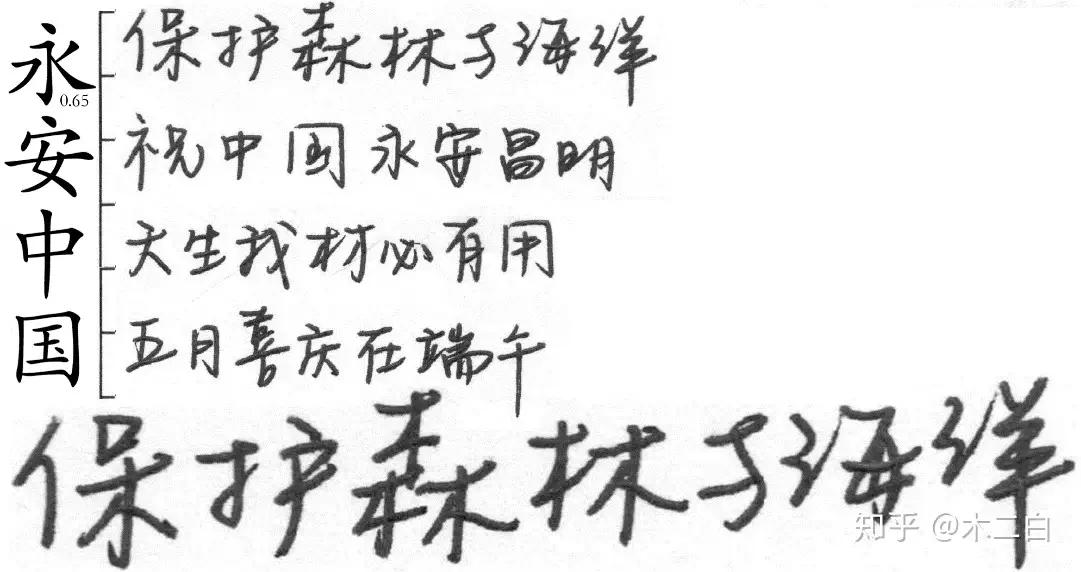 永安中国
0.65
保护森林与海洋
祝中国永安昌明
天生我材必有用
五月喜庆在端午
保护森林与海洋
知乎 @木二白